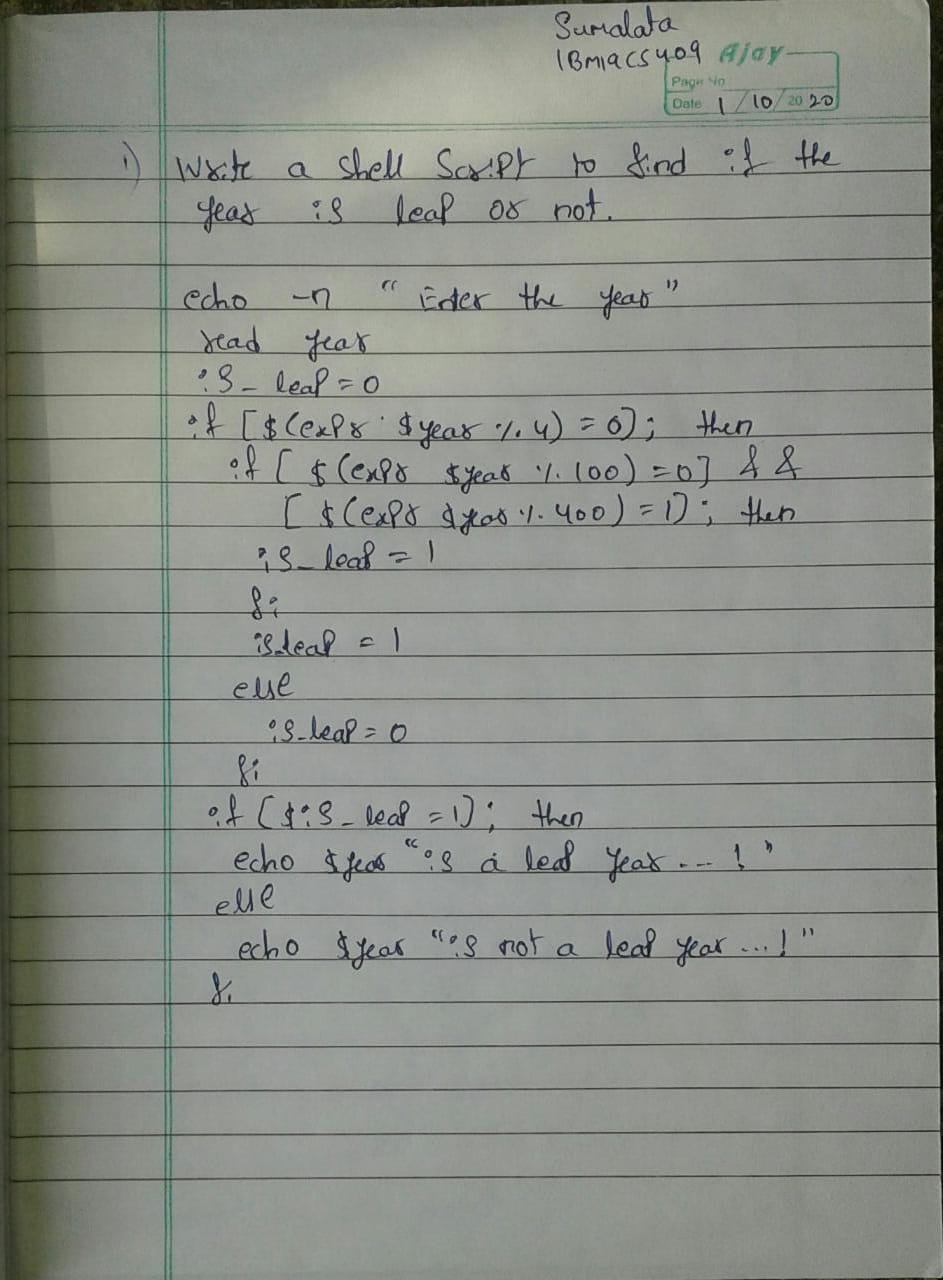 Sumalata
1BM19CS409 Ajay
Page No
Date 1/10/2020
1) Write a shell Script to find if the
year is leap or not.
echo -n "Enter the year"
read year
is_leap=0
if [$(expr $year % 4) = 0]; then
if [ $(expr $year % 100) = 0] &&
[ $(expr $year % 400) = 1]; then
is_leap = 1
fi
is_leap = 1
else
is_leap = 0
fi
if [$is_leap = 1]; then
echo $year "is a leap year ... ! "
else
echo $year "is not a leap year ...! "
fi